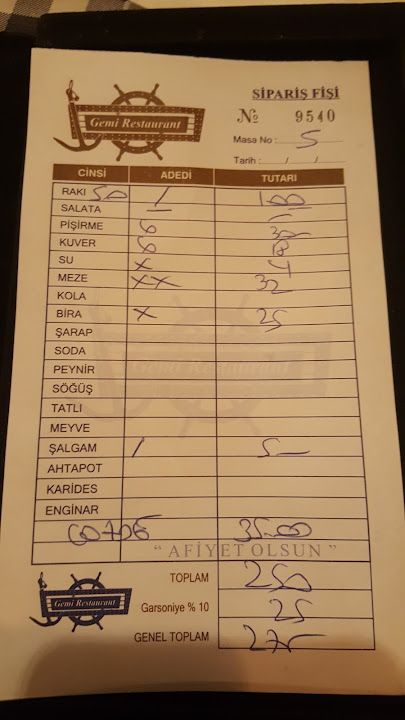 SİPARİŞ FİŞİ
Gemi Restaurant
№ 9540
Masa No : 5
Tarih : / /
CİNSİ ADEDİ TUTARI
RAKI 50 1 100
SALATA —
PİŞİRME 6 30
KUVER 6 18
SU x 4
MEZE xx 32
KOLA
BİRA x 25
ŞARAP
SODA
PEYNİR
SÖĞÜŞ
TATLI
MEYVE
ŞALGAM 1 5 —
AHTAPOT
KARİDES
ENGİNAR
35.00
" AFİYET OLSUN "
TOPLAM 250
Gemi Restaurant
Garsoniye % 10 25
GENEL TOPLAM 275